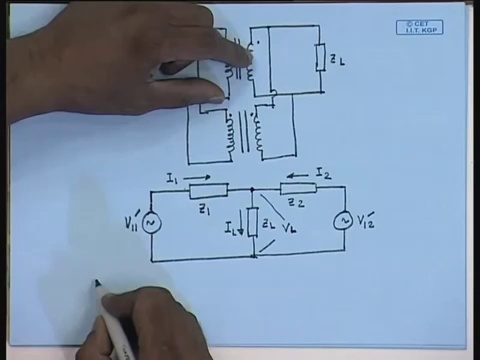 © CET
I.I.T. KGP
ZL
I1
I2
Z1
Z2
V11′
IL
ZL
VL
V12′